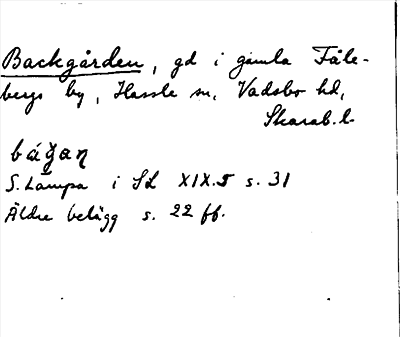 Backgården, gd i gamla Fåle-
bergs by, Hassle sn, Vadsbo hd,
Skarab.l.
bágan
S. Lampa i SL XIX.5 s. 31
Äldre belägg s. 22 ff.